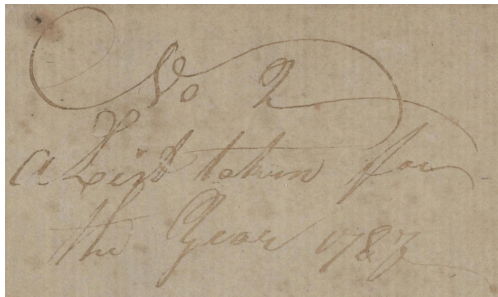 No 2
a List taken for
the Year 1787